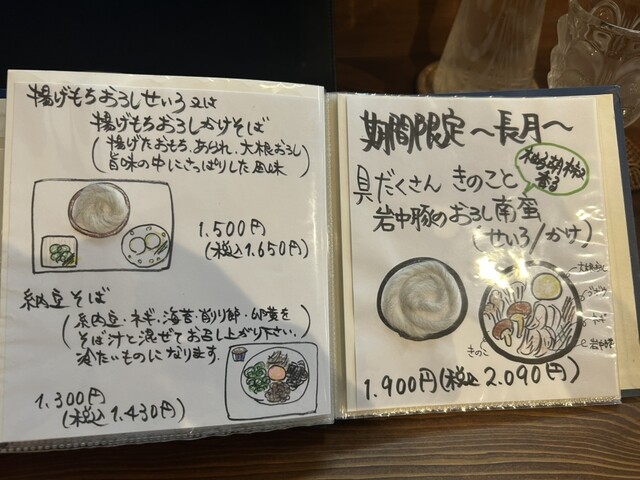 揚げもちおろしせいろ 又は
揚げもちおろしかけそば
(揚げたおもち、あられ、大根おろし
旨味の中にさっぱりした風味)
1.500円
(税込1.650円)
納豆そば
(糸内豆・ネギ・海苔・削り節・卵黄を
そば汁と混ぜてお召し上がり下さい。
冷たいものになります。)
1.300円
(税込1.430円)
期間限定 〜長月〜
柚子胡椒
香る
具だくさん きのこと
岩中豚のおろし南蛮
(せいろ/かけ)
大根おろし
きのこ
岩中豚
1.900円(税込2.090円)